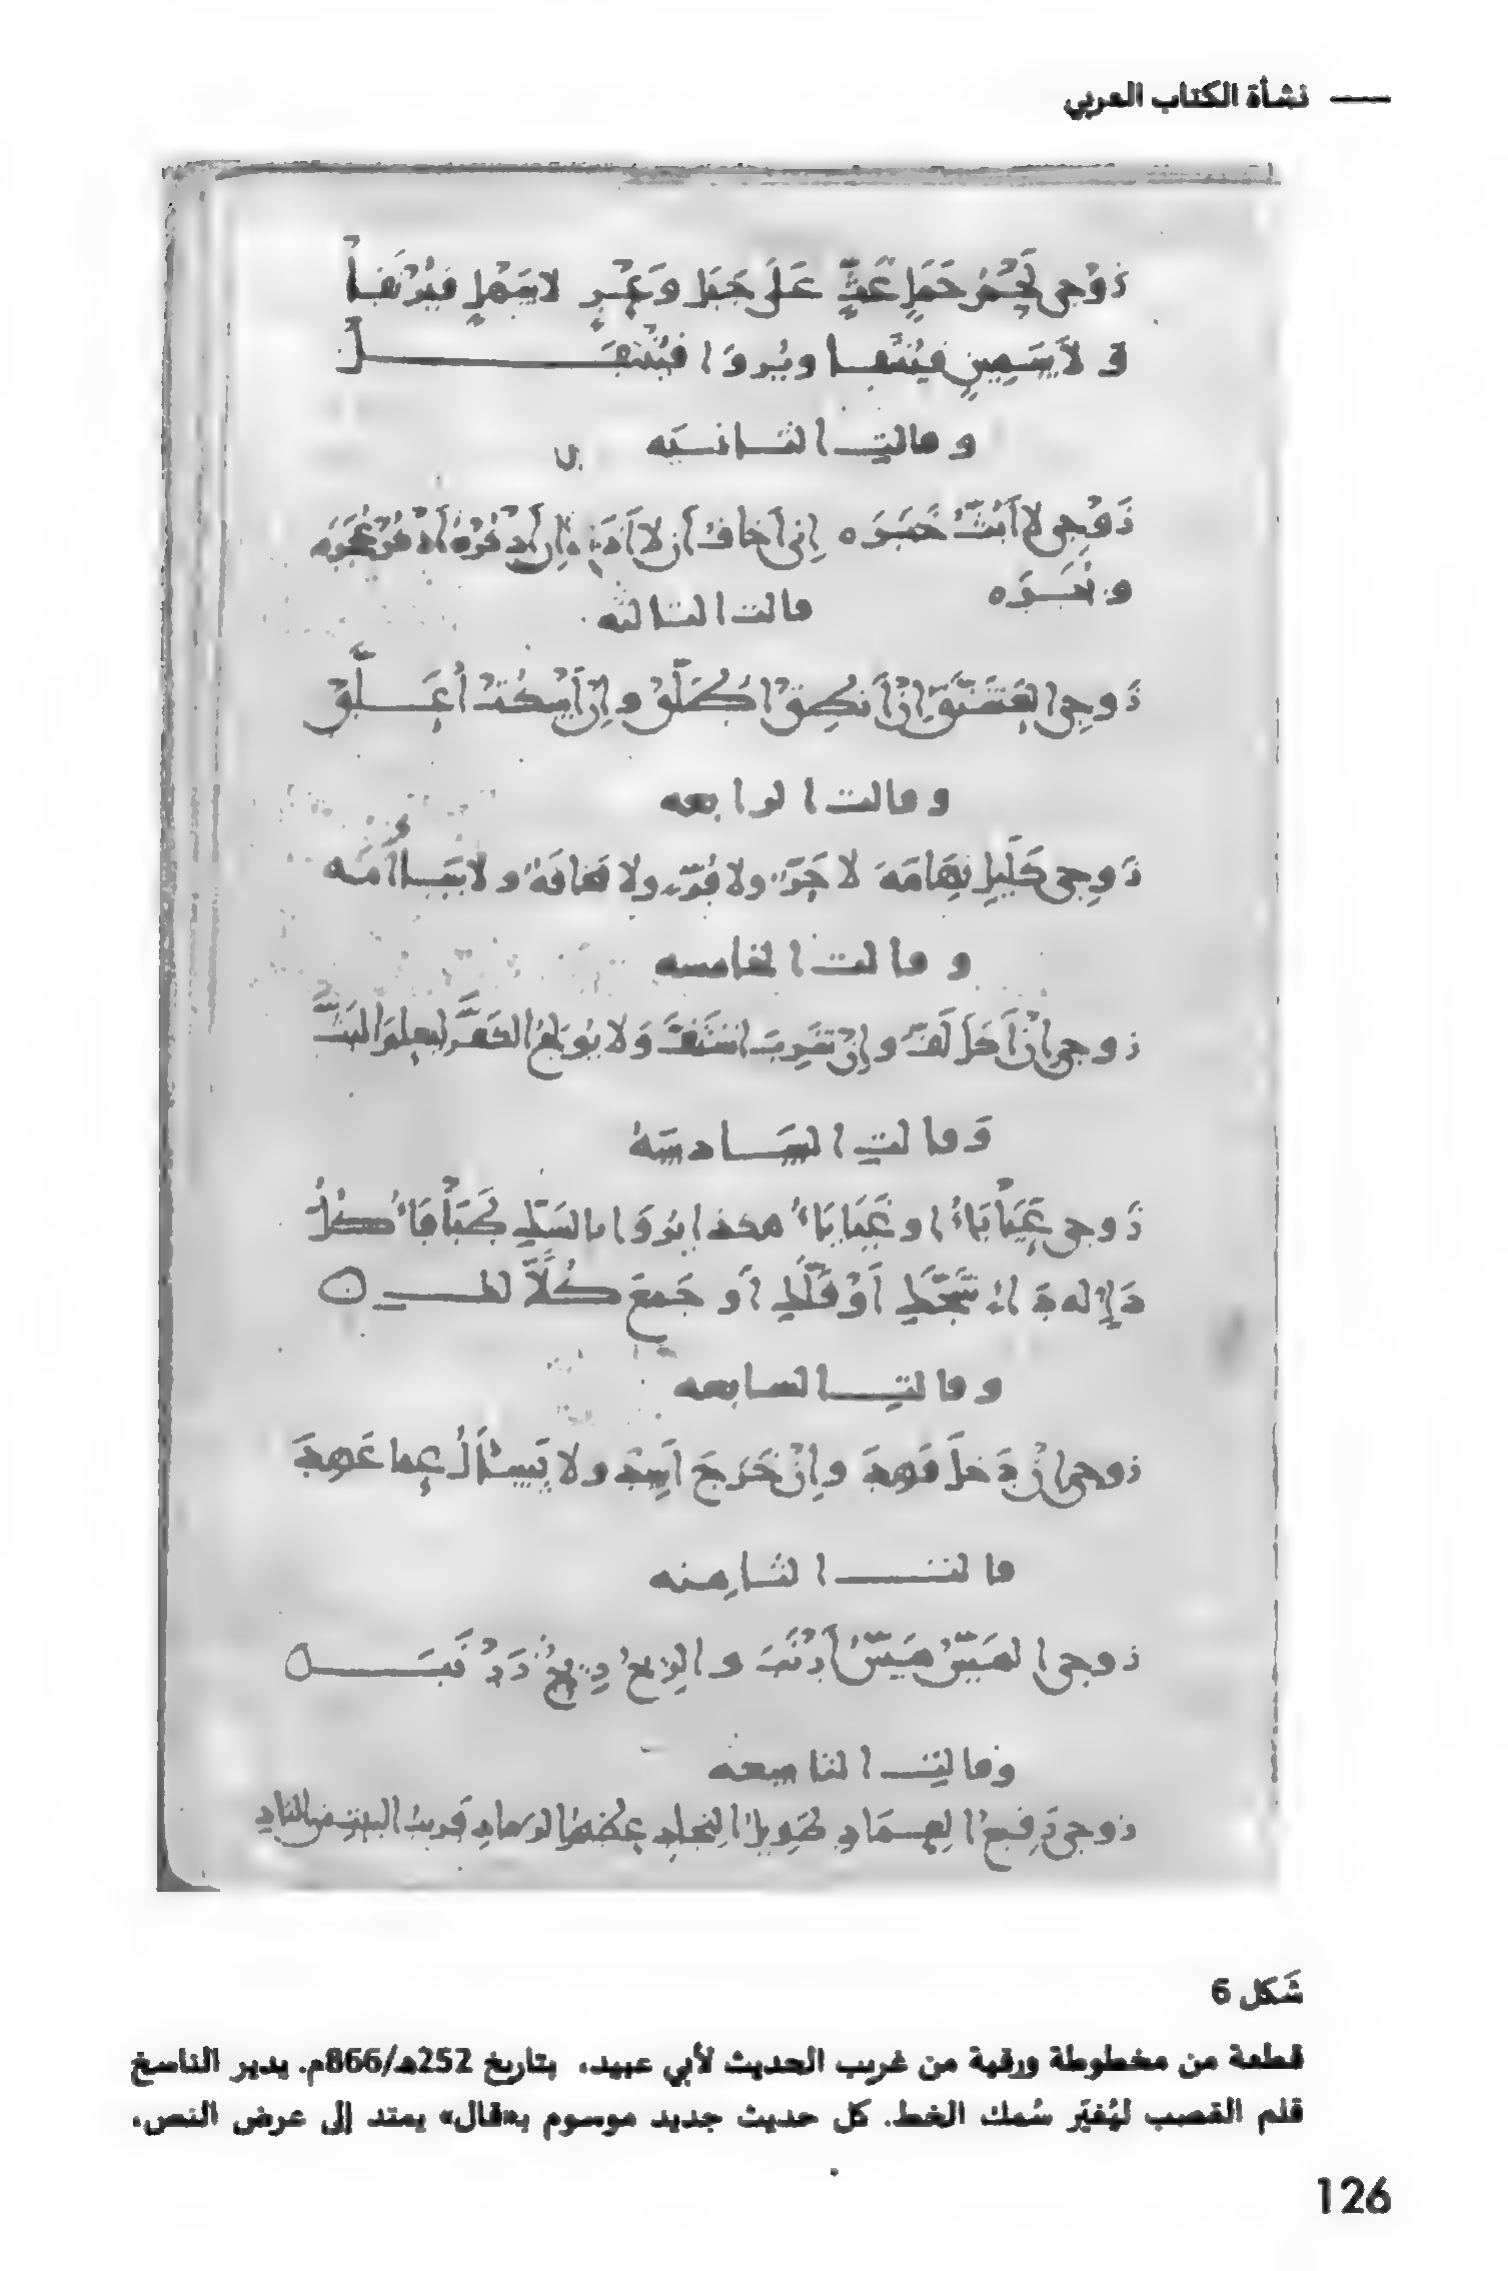 نشأة الكتاب العربي
زَوْجي لَحْمُ جَمَلٍ غَثٍّ عَلَى جَبَلٍ وَعْرٍ لا سَهْلٍ فيُرْتَقَا
وَ لاَ سَمِينٍ فيُنْتَقَا ويُروَا فيُنْتَقَل
وقالت الثانيه
زَوْجي لا أَبُثُّ خَبَرَه إني أخافُ أن لا أَذَرَه إن أَذْكُرْهُ أَذْكُرْ عُجَرَه
وبُجَرَه
قالت الثالثه
زَوجي العَشَنَّقُ إنْ أَنطِقْ أُطَلَّقْ وإنْ أَسكُتْ أُعَلَّقْ
وقالت الرابعه
زَوجي كَلَيلِ تِهَامَةَ لا حَرٌّ ولا قُرٌّ ولا مَخافَةُ ولا سَأامَه
وقالت الخامسه
زوجي إنْ أَكَلَ لَفَّ وإنْ شَرِبَ اشْتَفَّ وَلا يُولِجُ الكَفَّ ليعلَمَ البَثَّ
وَقالتِ السَّادسَةُ
زَوجي عَيَاْيَاءُ أو غَيَايَاءُ هكذا يُروَا بالشَكِّ طَبَاْقَاءُ كُلُّ
دَاءٍ له دَاءٌ شَجَّكِ أَوْ فَلَّكِ أَو جَمعَ كُلاًّ لكِ
وقالت السابعه
زوجي إنْ دَخلَ فَهِدَ وإنْ خَرَجَ أَسِدَ ولا يَسْأَلُ عما عَهِدَ
قالت الثامنه
زوجي المَسُّ مَسُّ أَرْنَبَ والرِيحُ رِيحُ زَرْنَب
وقالت التاسعه
زوجي رَفيعُ العِمَادِ طَويلُ النِجادِ عظيمُ الرَمادِ قَريبُ البيتِ من النادِ
شَكل 6
قطعة من مخطوطة ورقية من غريب الحديث لأبي عبيد، بتاريخ 252هـ/866م. يدير الناسخ
قلم القصب ليُغيّر سُمك الخط. كل حديث جديد موسوم بـ«قال» يمتد إلى عرض النص.
126